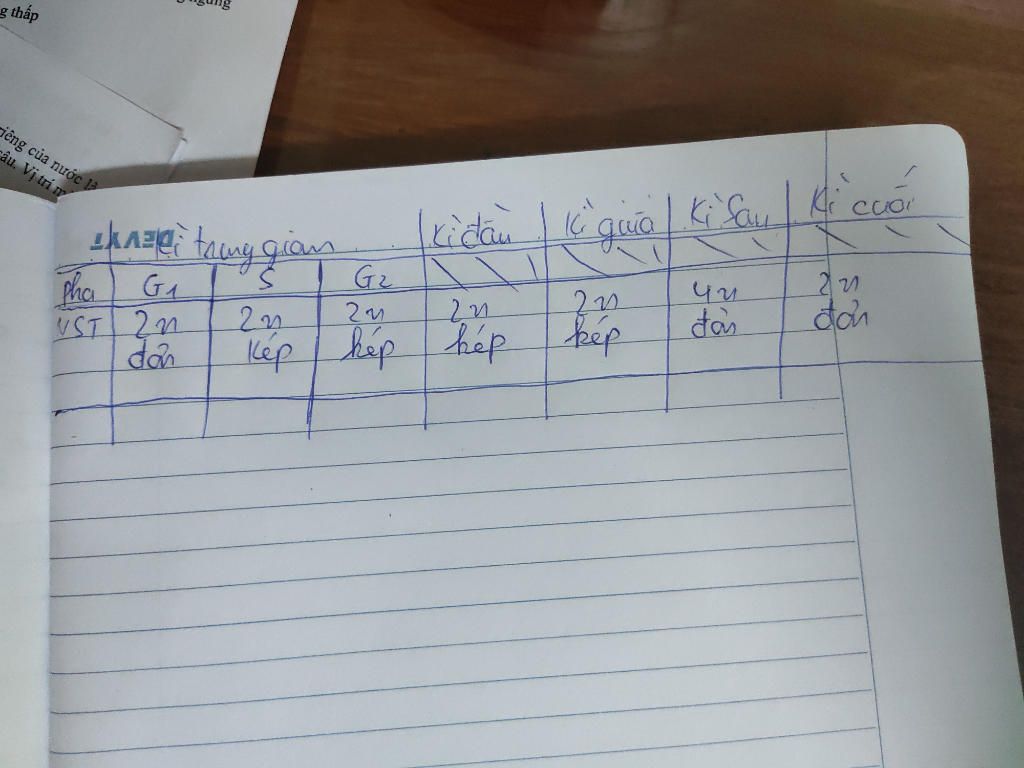 g thấp
ngưng
riêng của nước là
câu. Vị trí
DEVYT
Kì trung gian Kì đầu Kì giữa Kì Sau Kì cuối
Pha G1 S G2
VST 2n 2n 2n 2n 2n 4n 2n
đơn kép kép kép kép đơn đơn